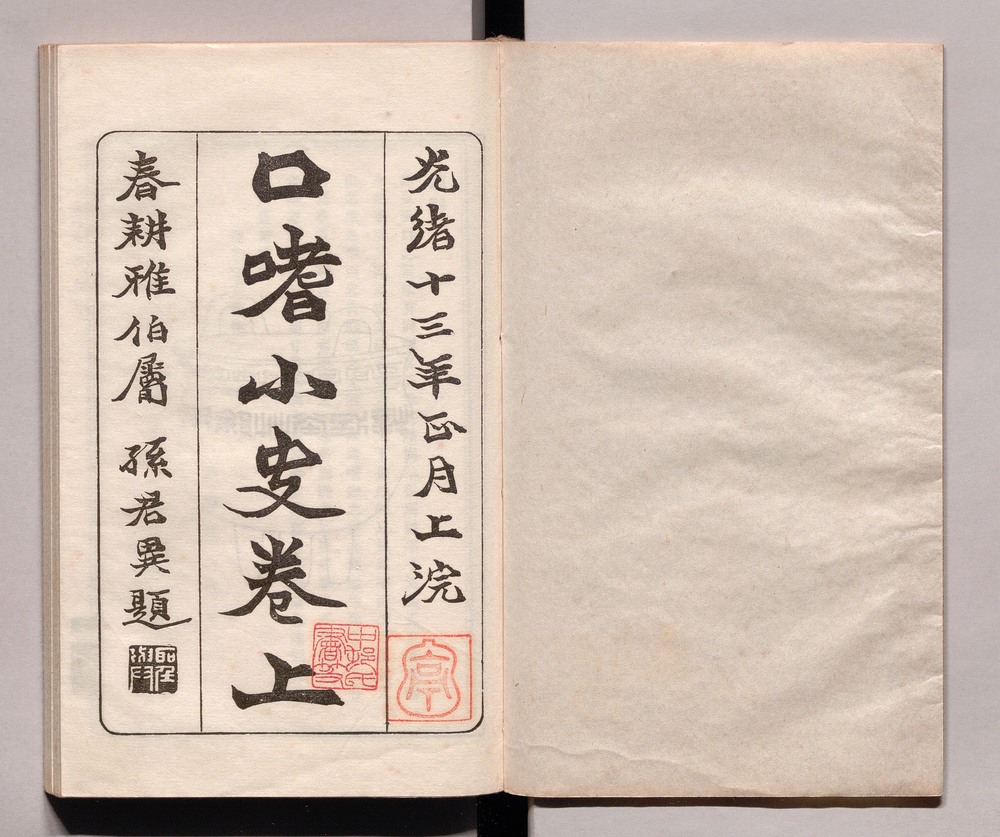 光緒十三年正月上浣
口嗜小史卷上
春耕雅伯屬 孫君異題